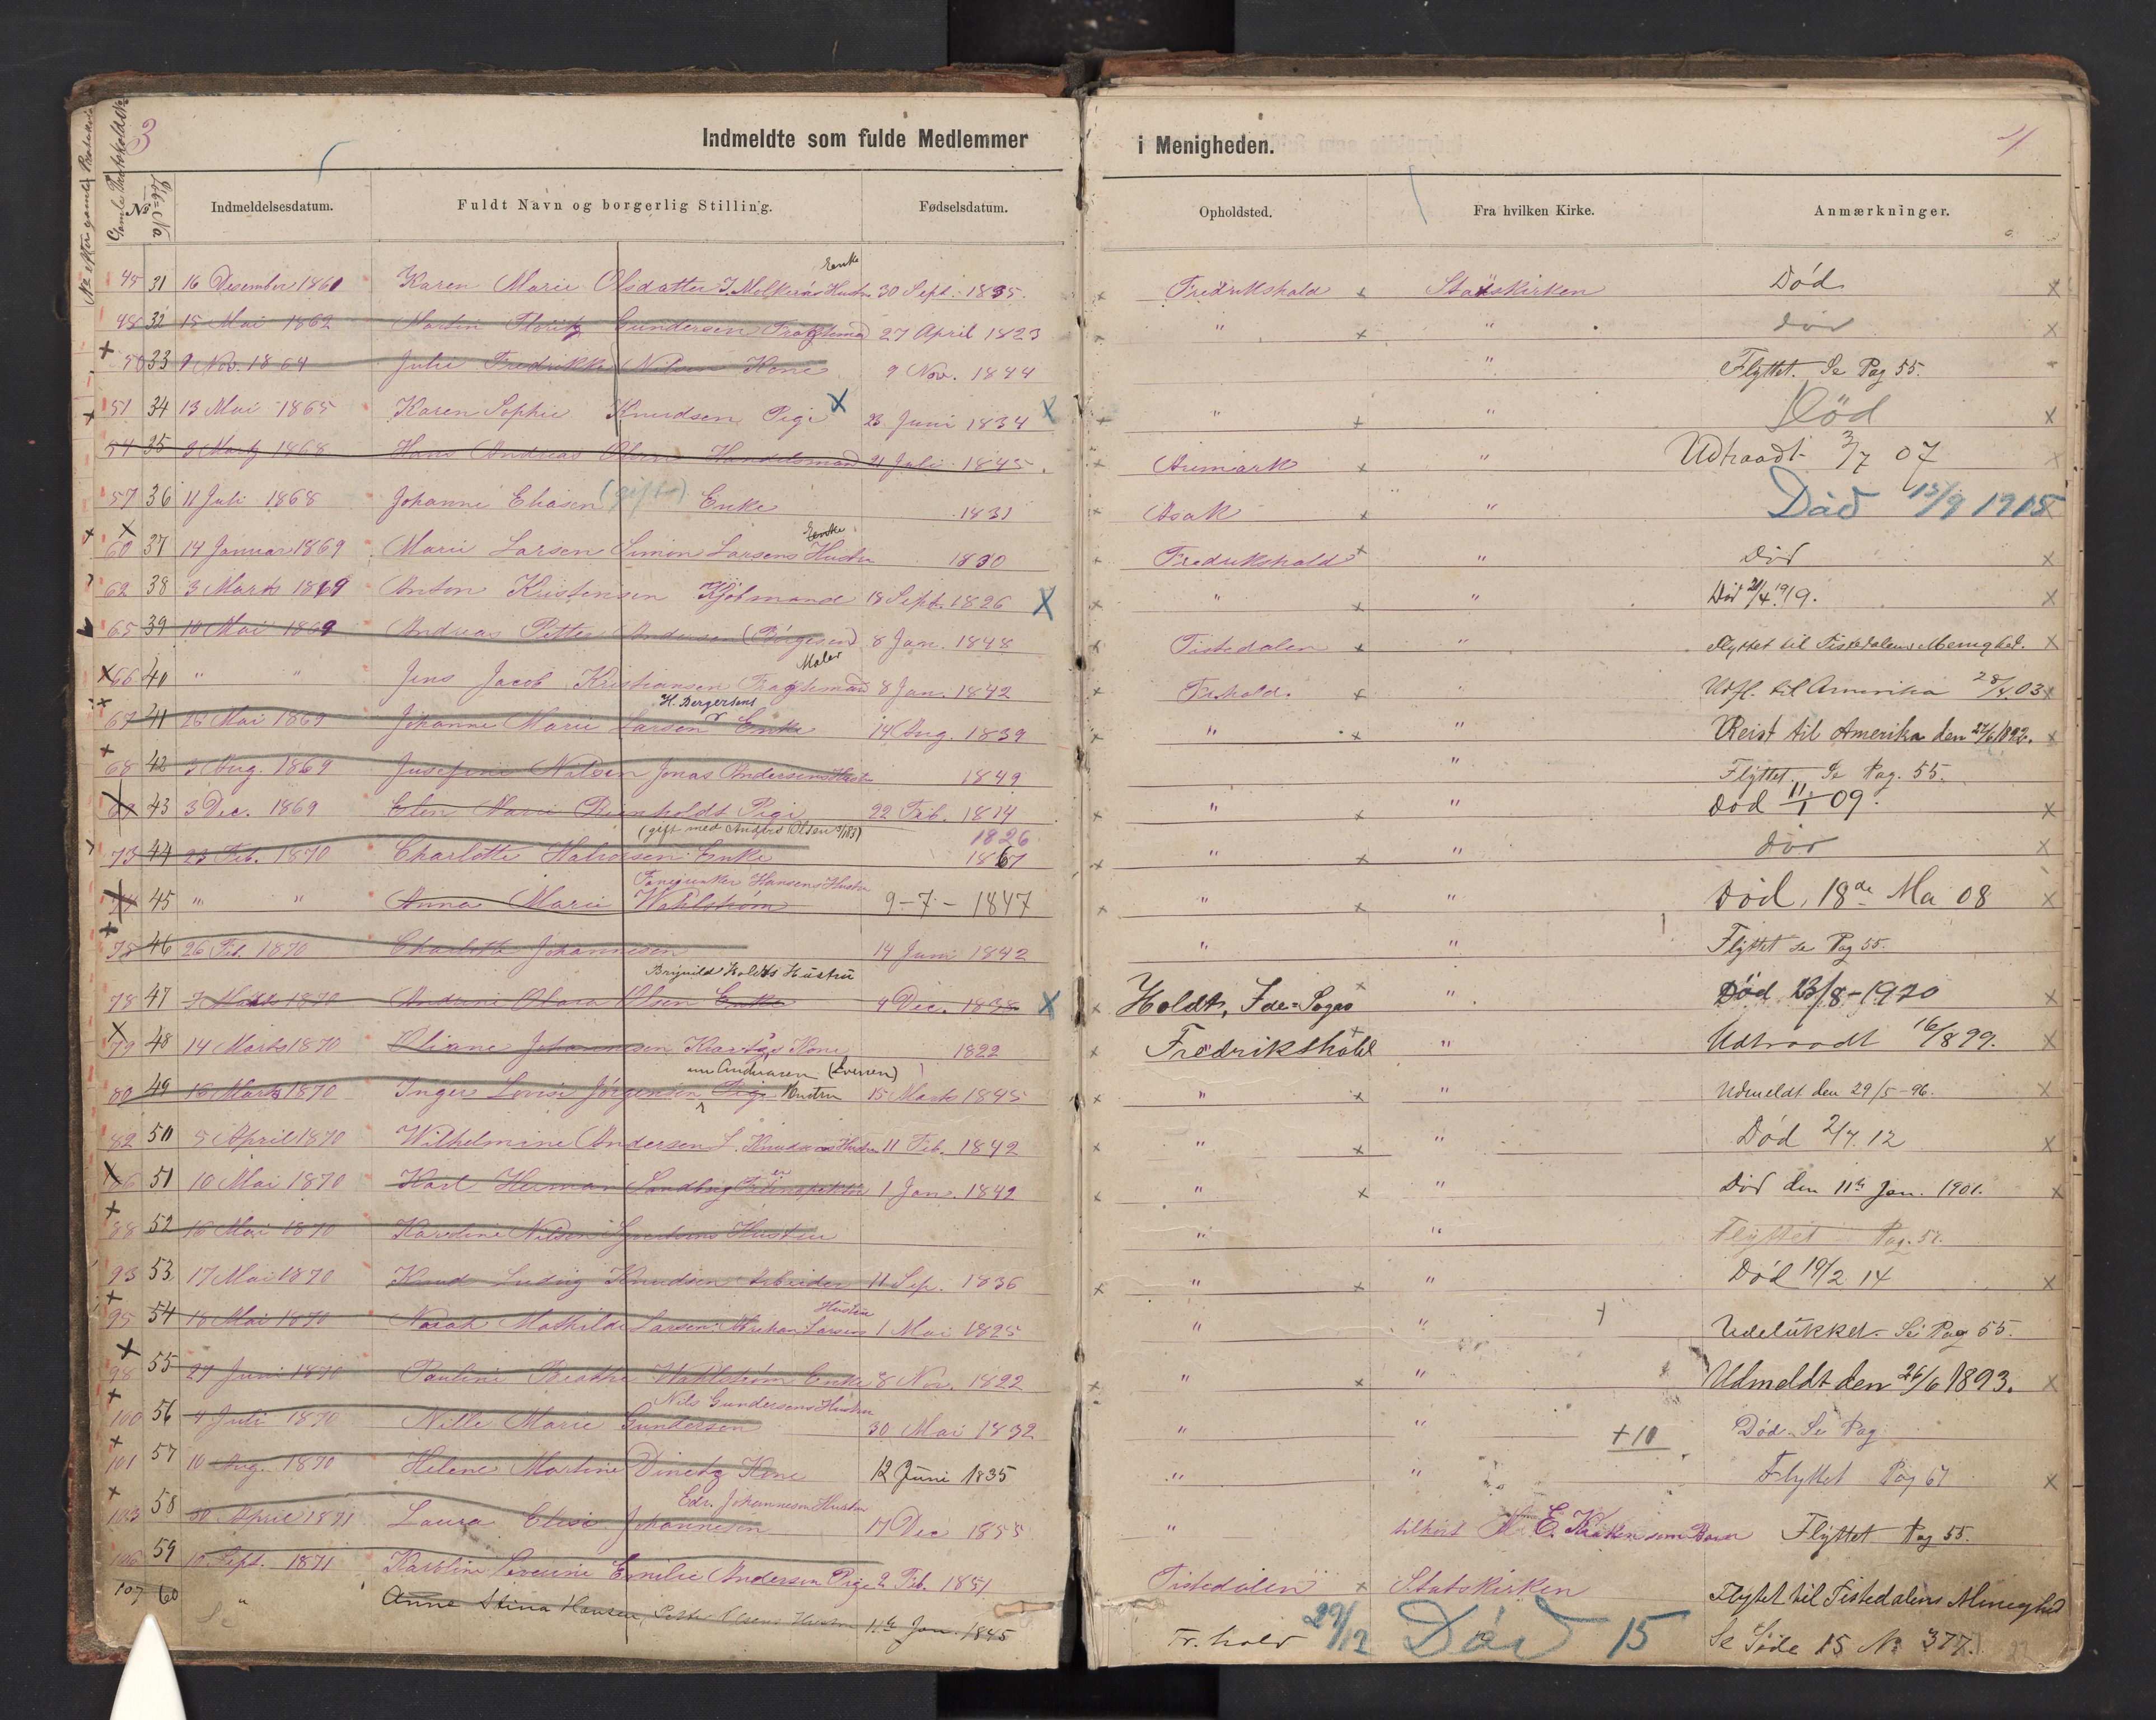 3
Indmeldte som fulde Medlemmer i Menigheden.
4
No efter gamle Protokol
Gamle Protokol No
Löb=No
No
Indmeldelsesdatum. Fuldt Navn og borgerlig Stilling. Fødselsdatum. Opholdsted. Fra hvilken Kirke. Anmærkninger.
Enke
45 31 16 Desember 1861 Karen Marie Olsdatter J. Melkers Hustru 30 Sept. 1835. Fredrikshald Statskirken Död
48 32 15 Mai 1862 Martin Gundersen Fragtemand 27 April 1823 " " död
50 33 9 Nov. 1864 Julie Fredrikke Nilsen Kone 9 Nov. 1844 " Flyttet. Se Pag 55.
51 34 13 Mai 1865 Karen Sophie Knudsen Pige 23 Juni 1834 " " Död
54 35 9 Marts 1868 Hans Andreas Olsen Handelsmand 21 Juli 1845. Aremark " Udtraadt 3/7 07
57 36 11 Juli 1868 Johanne Eliasen (gift) Enke 1831 Asak " Död 15/9 1915
Enke
60 37 14 Januar 1869 Marie Larsen Simon Larsens Hustru 1830 Fredrikshald " Död
62 38 3 Marts 1869 Anton Kristensen Kjöbmand 18 Sept. 1826 " " Död 21/4 1919.
65 39 10 Mai 1869 Andreas Petter Andersen (Börgesen) 8 Jan. 1848 Tistedalen " Flyttet til Tistedalens Menighed.
Maler
66 40 " " Jens Jacob Kristiansen Fragtemand 8 Jan. 1842 Fr.hald. " Udfl. til Amerika 28/8 03
H. Bergersens
67 41 28 Mai 1869 Johanne Marie Larsen Enke 14 Aug. 1839 " " Reist til Amerika den 27/6 1892.
68 42 3 Aug. 1869 Josefine Nilsen Jonas Andersens Hustru 1849 " Flyttet. Se Pag. 55.
43 3 Dec. 1869 Elen Marie Reinholdt Pige 22 Feb. 1814 " " död 11/1 09.
(gift med Anders Olsen) 1826
73 44 23 Feb. 1870 Charlotte Halvorsen Enke 1867 " " död
Hansens Hustru
45 " " Anna Marie Wahlström 9-7-1847 " " Död, 18de Ma 08
78 46 26 Feb. 1870 Charlotte Johannesen 14 Juni 1842 " " Flyttet se Pag 55.
Brynild Holdts Hustru
78 47 7 Marts 1870 Andrine Olava Olsen Enke 4 Dec. 1838 Holdt, Ide=Sogn " Död 23/8-1920
79 48 14 Marts 1870 Oliane Johannesen Kone 1822 Fredrikshald " Udtraadt 16/8 99.
nu Andreasen (Sversen)
80 49 16 Marts 1870 Inger Lovise Jörgensen Pige Hustru 15 Marts 1845 " " Udmeldt den 29/5-96.
82 50 5 April 1870 Wilhelmine Andersen L. Knudsens Hustru 11 Feb. 1842 " " Död 2/7. 12
86 51 10 Mai 1870 Karl Herman Sandberg 1 Jan. 1842 " " Död den 11te Jan. 1901.
88 52 16 Mai 1870 Karoline Nilsen Hustru " " Flyttet Pag. 51.
93 53 17 Mai 1870 Knud Ludvig Knudsen Arbeider 11 Sep. 1836 " " Död 19/2 14
Hustru
95 54 18 Mai 1870 Norah Mathilde Larsen Larsens 1 Mai 1825 " " Udelukket. Se Pag 55.
98 55 27 Juni 1870 Pauline Beathe Wahlström Enke 8 Nov. 1822 " " Udmeldt den 26/6 1893.
Nils Gundersens Hustru
100 56 4 Juli 1870 Nille Marie Gundersen 30 Mai 1832 " " Död. Se Pag
+10
101 57 10 Aug. 1870 Helene Martine Kone 12 Juni 1835 " " Flyttet Pag 67
Edv. Johannesens Hustru
103 58 30 April 1871 Laura Elise Johannesen 17 Dec 1855 " tilhört E. Kirken som Barn Flyttet Pag 55.
106 59 10 Sept. 1871 Karoline Severine Emilie Andersen Pige 2 Feb. 1851 Tistedalen Statskirken Flyttet til Tistedalens Menighed
107 60 " Anne Stina Hansen Hustru 11te Jan. 1845 Fr. hald 29/12 Död 15 Se Side 15 No 377.